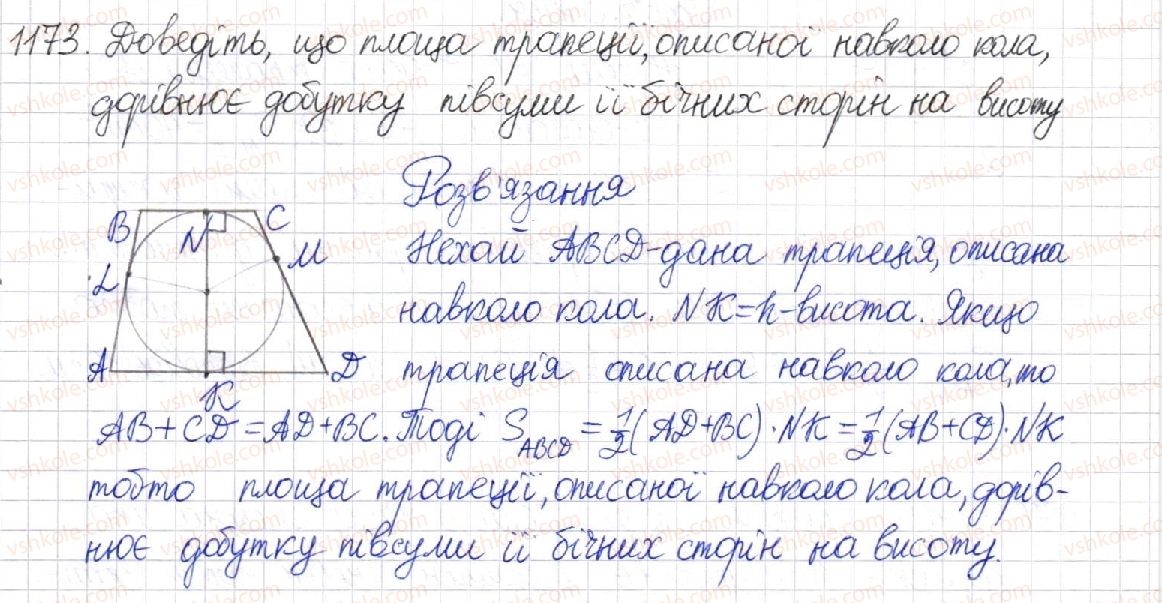 1173. Доведіть, що площа трапеції, описаної навколо кола,
дорівнює добутку півсуми її бічних сторін на висоту
Розв'язання
B N C
Нехай ABCD-дана трапеція, описана
L M
навколо кола. NK=h-висота. Якщо
A K D
трапеція описана навколо кола, то
AB+CD=AD+BC. Тоді S_ABCD = 1/2(AD+BC)·NK = 1/2(AB+CD)·NK
тобто площа трапеції, описаної навколо кола, дорів-
нює добутку півсуми її бічних сторін на висоту.
vshkole.com